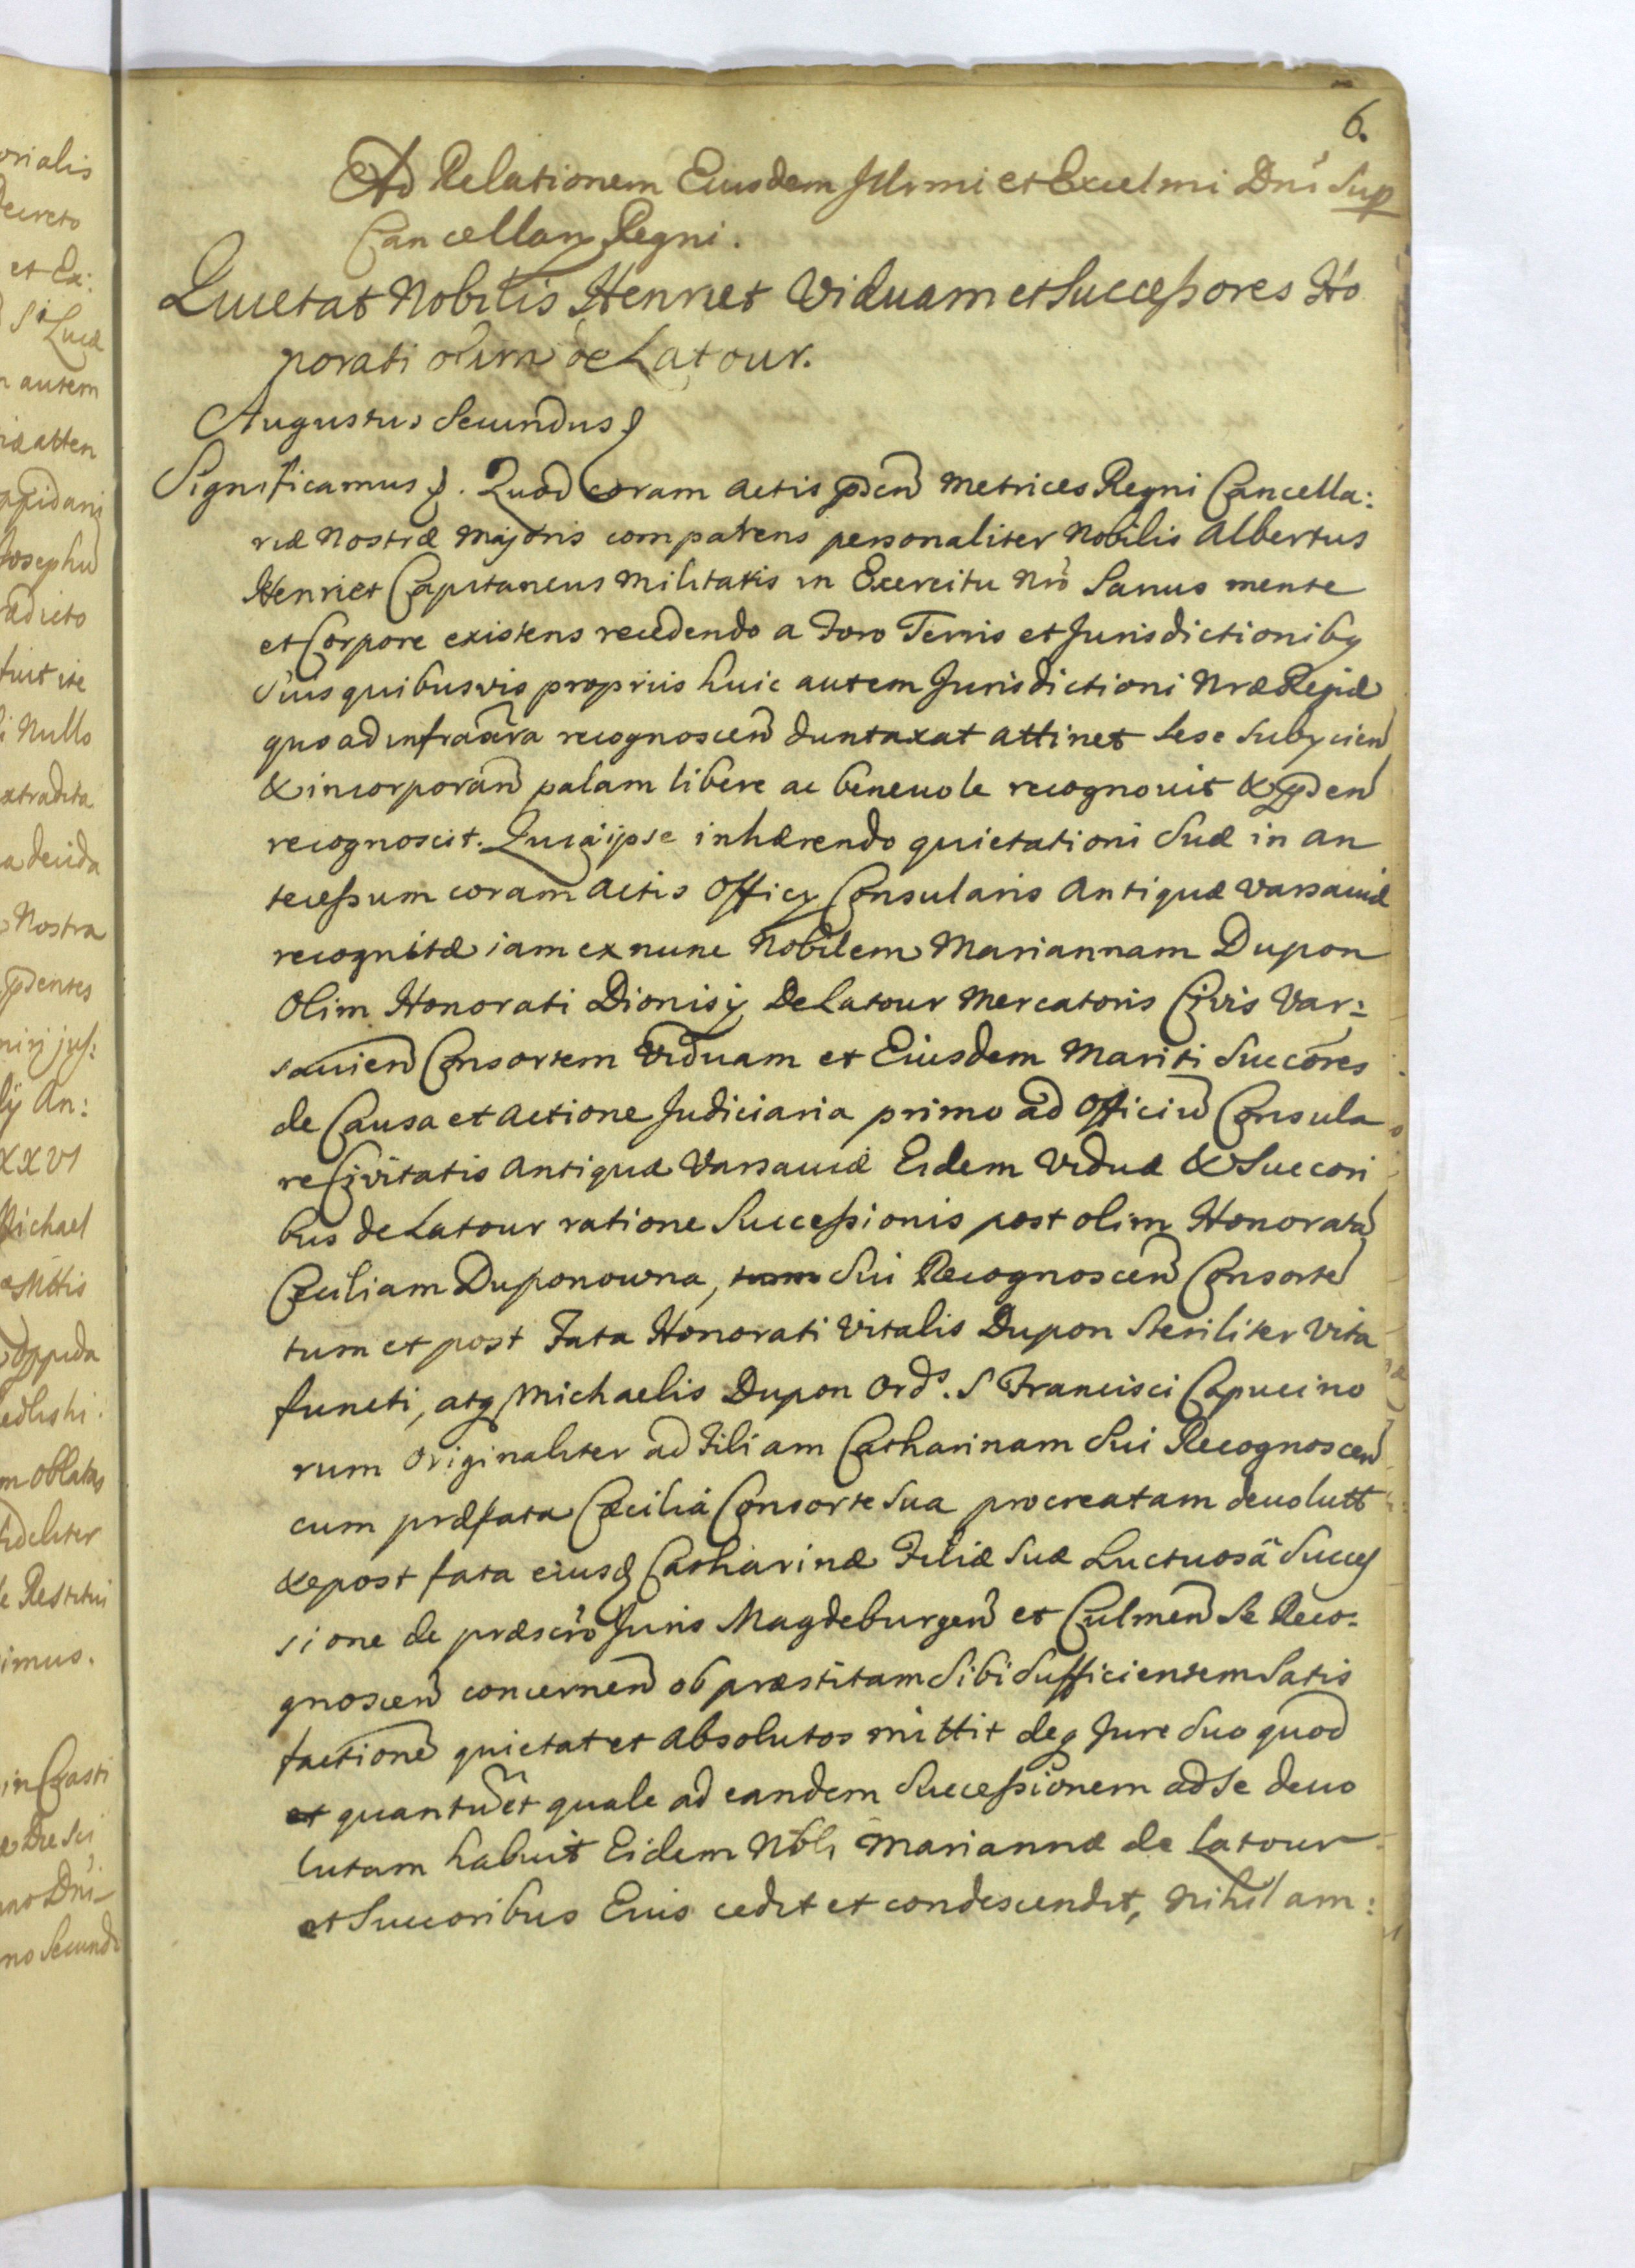 6.
Ad Relationem Eiusdem Illrmi et Excelmi Dni Sup
Cancellarÿ Regni.
Quietat Nobilis Henriet Viduam et Successores Ho
norati olim de Latour.
Augustus Secundus
Significamus. Quod coram Actis pńcn Metrices Regni Cancella:
riæ Nostræ Majoris comparens personaliter Nobilis Albertus
Henriet Capitaneus Militaris in Exercitu Nro Sanus mente
et Corpore existens recedendo a Foro Terris et Jurisdictionibq
Suis quibusvis proprijs huic autem Jurisdictioni Nræ Regiæ
quo ad infrascra recognoscen duntaxat attinet sese subÿcien
& incorporan palam libere ac beneuole recognouit & pńcn
recognoscit. Quia ipse inhærendo quietationi Suæ in an
tecessum coram Actis Officÿ Consularis Antiquæ Varsauiæ
recognitæ iam ex nunc Nobilem Mariannam Dupon
Olim Honorati Dionisÿ De Latour Mercatoris Civis Var:
sauien Consortem Viduam et Eiusdem Mariti Succores
de Causa et Actione Judiciaria primo ad Officiu Consula
re Civitatis Antiquæ Varsauiæ Eidem Viduæ & Succori
bus de Latour ratione Successionis post olim Honorata
Cæciliam Duponowna, Sui Recognoscen Consorte
tum et post Fata Honorati Vitalis Dupon Steriliter Vita
functi, atq Michaelis Dupon Ords. S Francisci Capucino
rum Originaliter ad Filiam Catharinam Sui Recognoscen
cum præfata Cæcilia Consorte Sua procreatam deuolutt
& post fata eiusd Catharinæ Filiæ Suæ Luctuosa Succes
sione de præscro Juris Magdeburgen et Culmen Se Reco:
gnoscen concernen ob præstitam Sibi Sufficientem Satis
factione quietat et Absolutos mittit deq Jure Suo quod
et quantu et quale ad eandem Successionem ad Se deuo
lutam habuit Eidem Nbli Mariannæ de Latour
et Succoribus Eius cedit et condescendit, Nihil am: